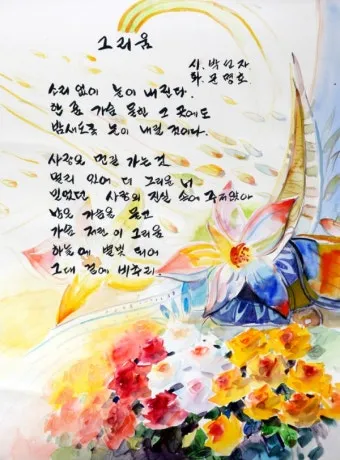 그리움
시. 박인자
화. 문명호
소리 없이 눈이 내린다.
한 줌 가슴 울한 그 곳에도
밤새도록 눈이 내릴 것이다.
사랑은 먼길 가는 것
멀리 있어 더 그리운 너
믿었던 사랑의 진실 속에 주저앉아
남은 가슴을 묻고
가슴 저민 이 그리움
하늘에 별빛 되어
그대 곁에 비추리